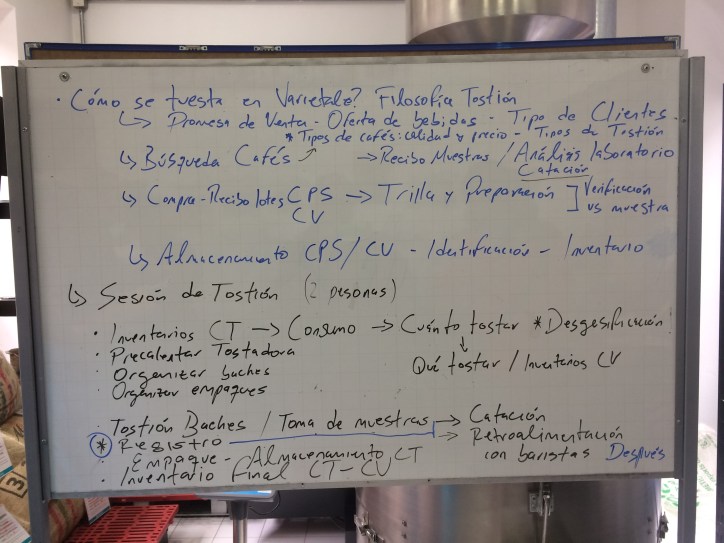 · Cómo se tuesta en Varietale? Filosofía Tostión
↳ Promesa de Venta - Oferta de bebidas - Tipo de Clientes.
* Tipos de cafés: calidad y precio - Tipos de Tostión
↳ Búsqueda Cafés ↗ → Recibo Muestras / Análisis laboratorio
Catación
↳ Compra - Recibo lotes CPS → Trilla y Preparación ] Verificación
CV vs muestra
↳ Almacenamiento CPS/CV - Identificación - Inventario
↳ Sesión de Tostión (2 personas)
· Inventarios CT → Consumo → Cuánto tostar * Desgasificación
· Precalentar Tostadora ↓
· Organizar baches Qué tostar / Inventarios CV
· Organizar empaques
· Tostión Baches / Toma de muestras → Catación
* Registro → Retroalimentación
· Empaque - Almacenamiento CT con baristas Después
· Inventario Final CT - CV
3